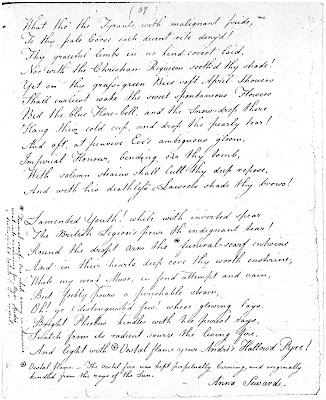 (37
What tho' the Tyrants, with malignant pride,
To thy pale Corse each decent rite deny'd!
Thy graceful limbs in no kind covert laid,
Nor with the Christian Requiem sooth'd thy shade!
Yet on thy grass-green Bier soft April Showers
Shall earliest wake the sweet spontaneous Flowers
Bid the blue Hare-bell, and the Snow-drop there
Hang their cold cup, and drop the pearly tear!
And oft, at pensive Eve's ambiguous gloom,
Imperial Honour, bending o'er thy tomb,
With solemn strains shall lull thy deep repose,
And with his deathless Laurels shade thy brows!
Lamented Youth! while with inverted spear
The British Legions pour th' indignant tear!
Round the dropt arm the funeral-scarf entwine
And in their hearts deep core thy worth enshrine,
While my weak Muse, in fond attempt and vain,
But feebly pours a perishable strain,
Oh! ye distinguish'd few! whose glowing lays
Bright Phœbus kindles with his purest rays,
Snatch from its radient source the living fire,
And light with Vestal flame your André's Hallow'd Pyre!
Vestal flame. – The Vestal fire was kept perpetually burning, and originally
kindled from the rays of the Sun.
Anna Seward.